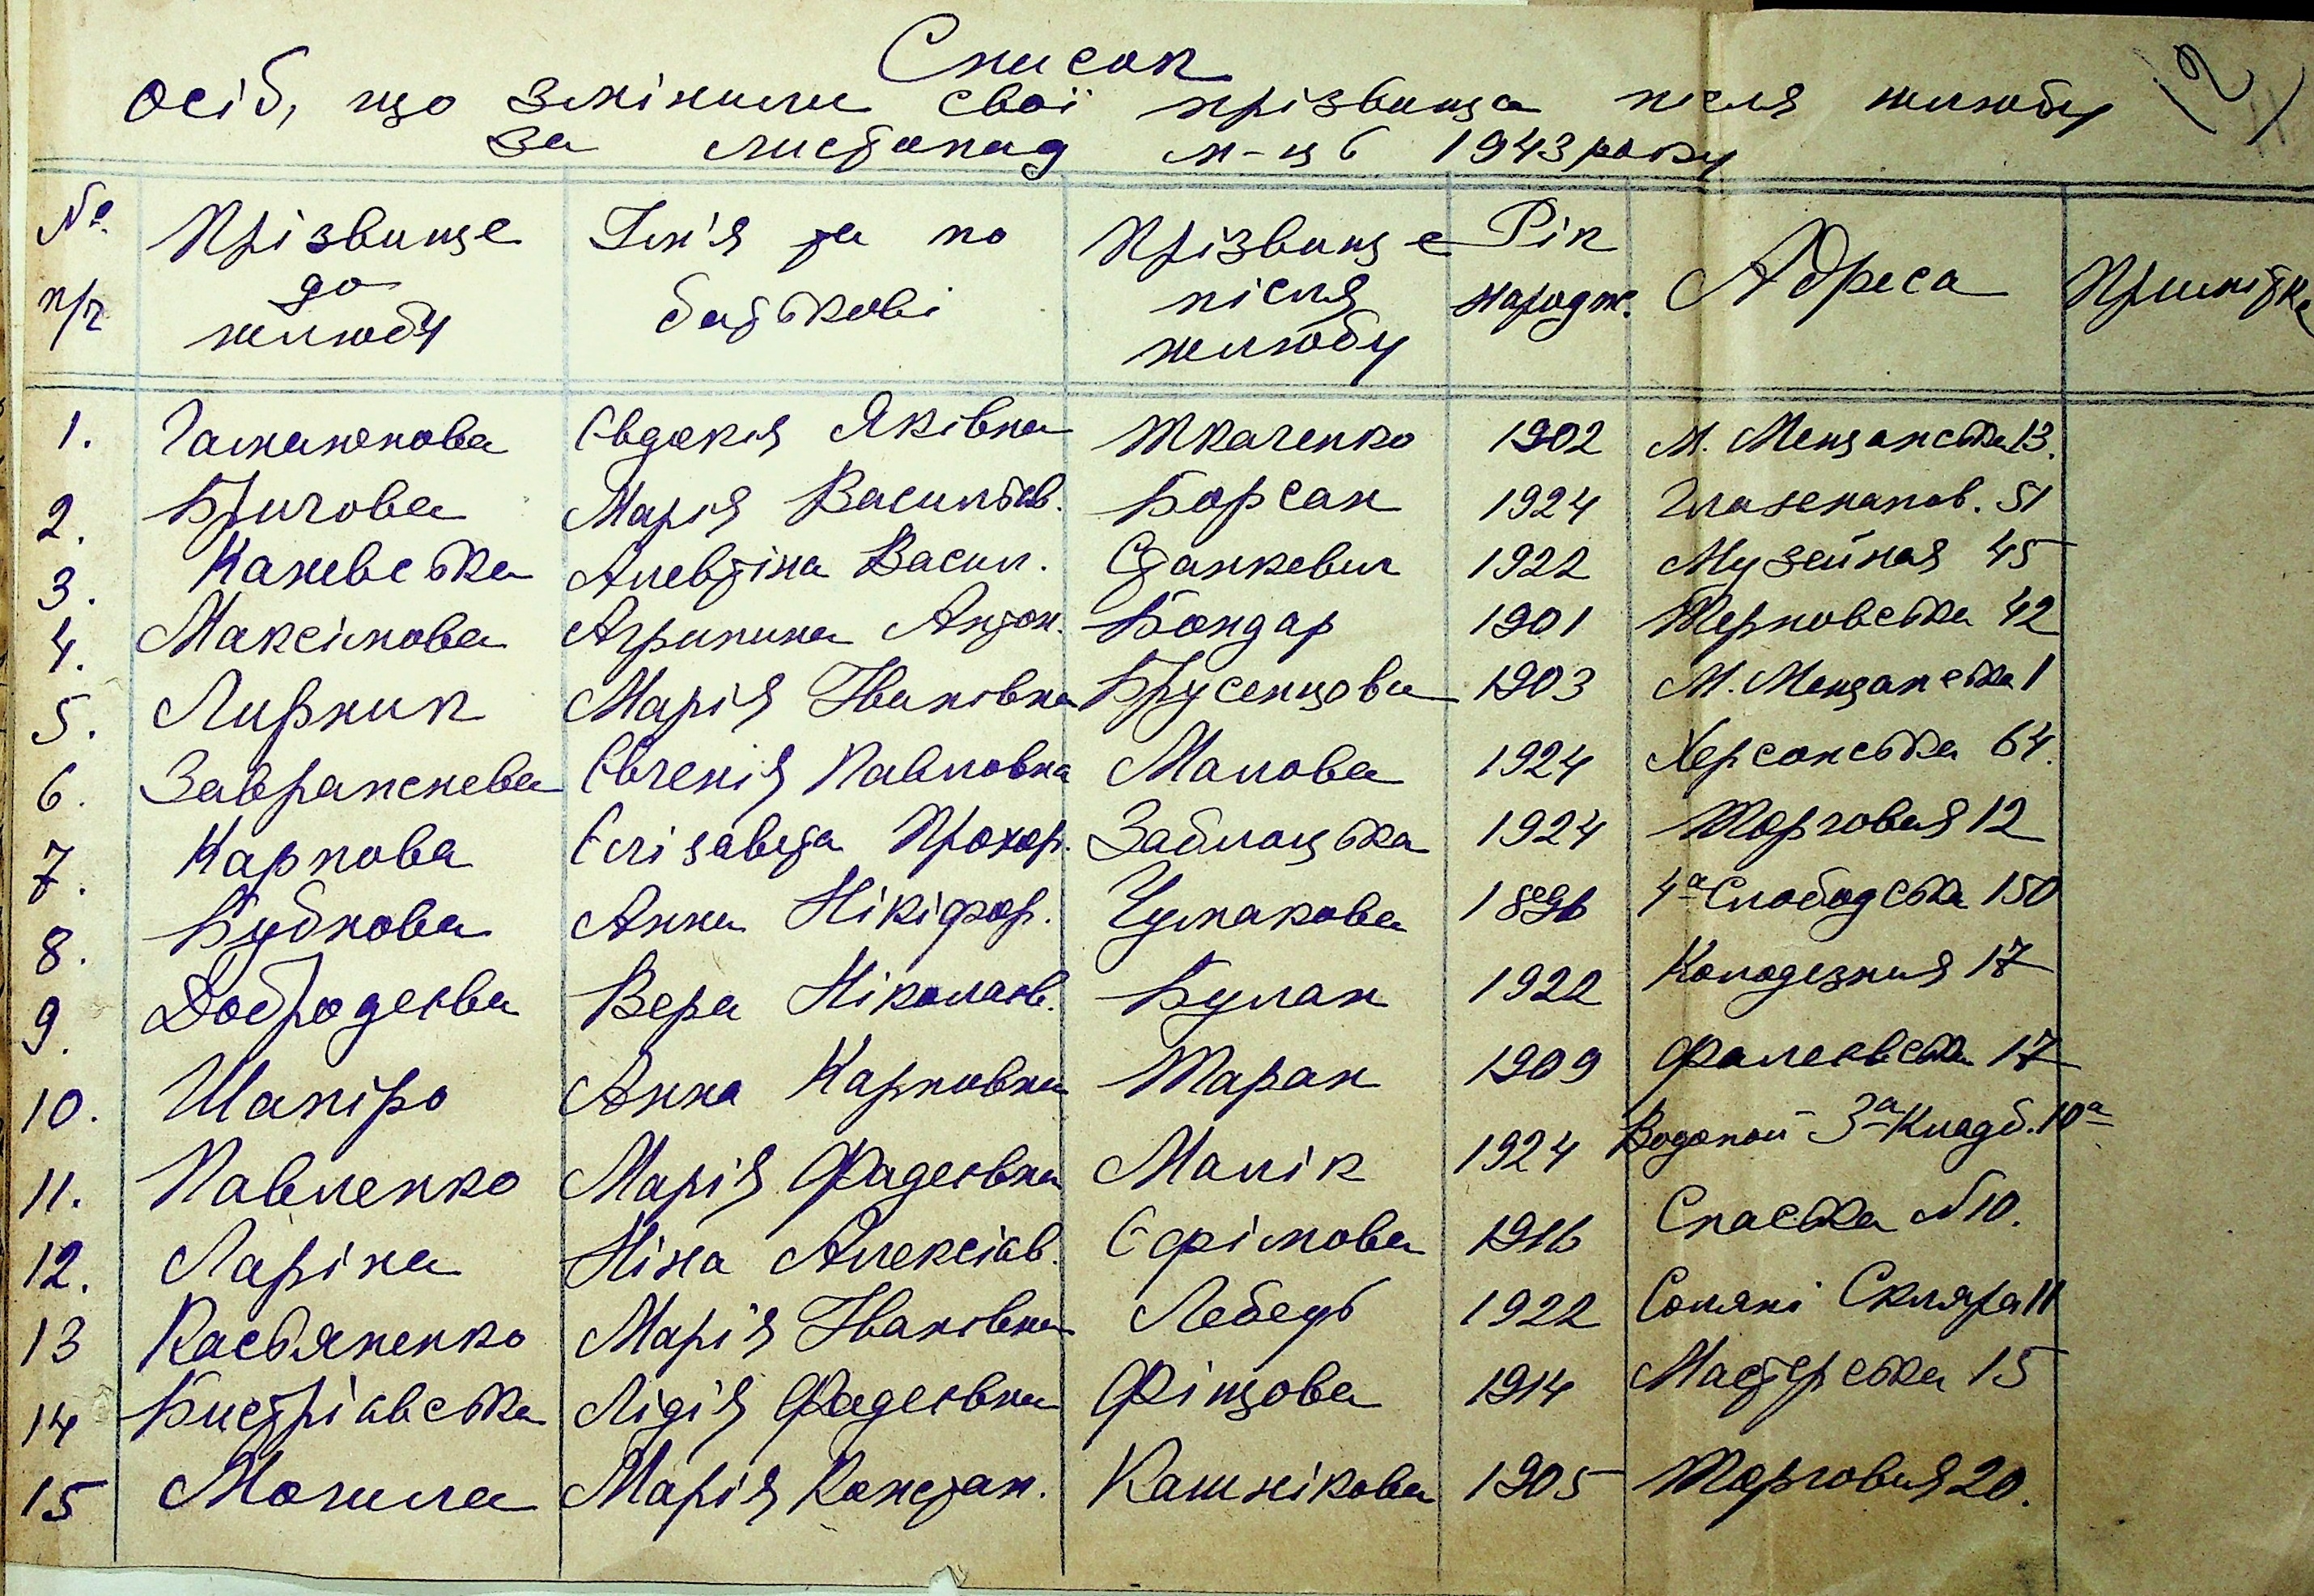 12
Список
осіб, що змінили свої прізвища після шлюбу
за листопад м-ць 1943 року
№ п/г Прізвище до шлюбу Ім'я та по батькові Прізвище після шлюбу Рік народж. Адреса Примітка
1. Евдокія Яківна Ткаченко 1902 М. Мещанська 13.
2. Бричова Марія Васильєв. Борсан 1924 Глазенапов. 51
3. Каневська Алевтіна Васил. Станкевич 1922 Музейная 45
4. Максімова Агрипина Антон. Бондар 1901 Терновська 42
5. Лирник Марія Іванівна Брусенцова 1903 М. Мещанська 1
6. Євгенія Павловна Малова 1924 Херсонська 64.
7. Карпова Єлізавета Прохор. Заблоцька 1924 Торговая 12
8. Бубнова Анна Нікіфор. Чумакова 1896 4а Слободська 150
9. Добродеєва Вера Ніколаєв. Булан 1922 Колодезная 17
10. Шапіро Анна Карповна Таран 1909 Фалеєвська 17
11. Павленко Марія Фадеєвна Малік 1924 Водопой 3а Кладб. 10а
12. Ларіна Ніна Алексієв. Єфімова 1916 Спаська №10.
13 Касьяненко Марія Іванівна Лебедь 1922 Соляні Скляра 11
14 Бистрієвська Лідія Фадеєвна Фінцова 1914 Мастерська 15
15 Могила Марія Констан. Кашнікова 1905 Торговая 20.